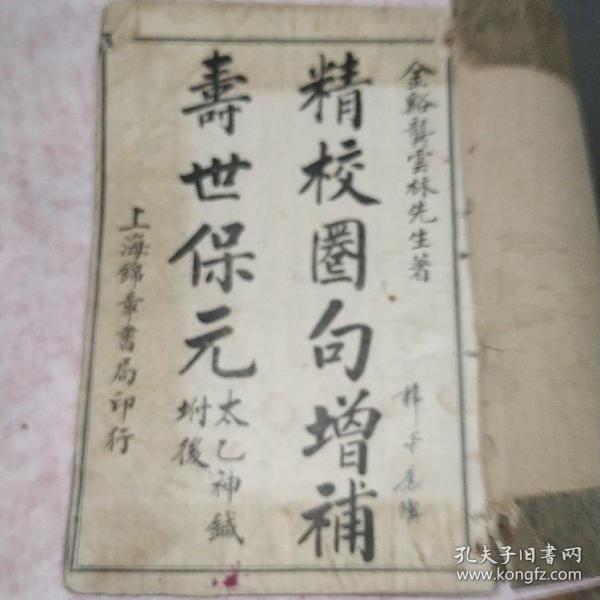 金谿龔雲林先生著
精校圈句增補
壽世保元
太乙神鍼
坿後
上海錦章書局印行
孔夫子旧書网
www.kongfz.com